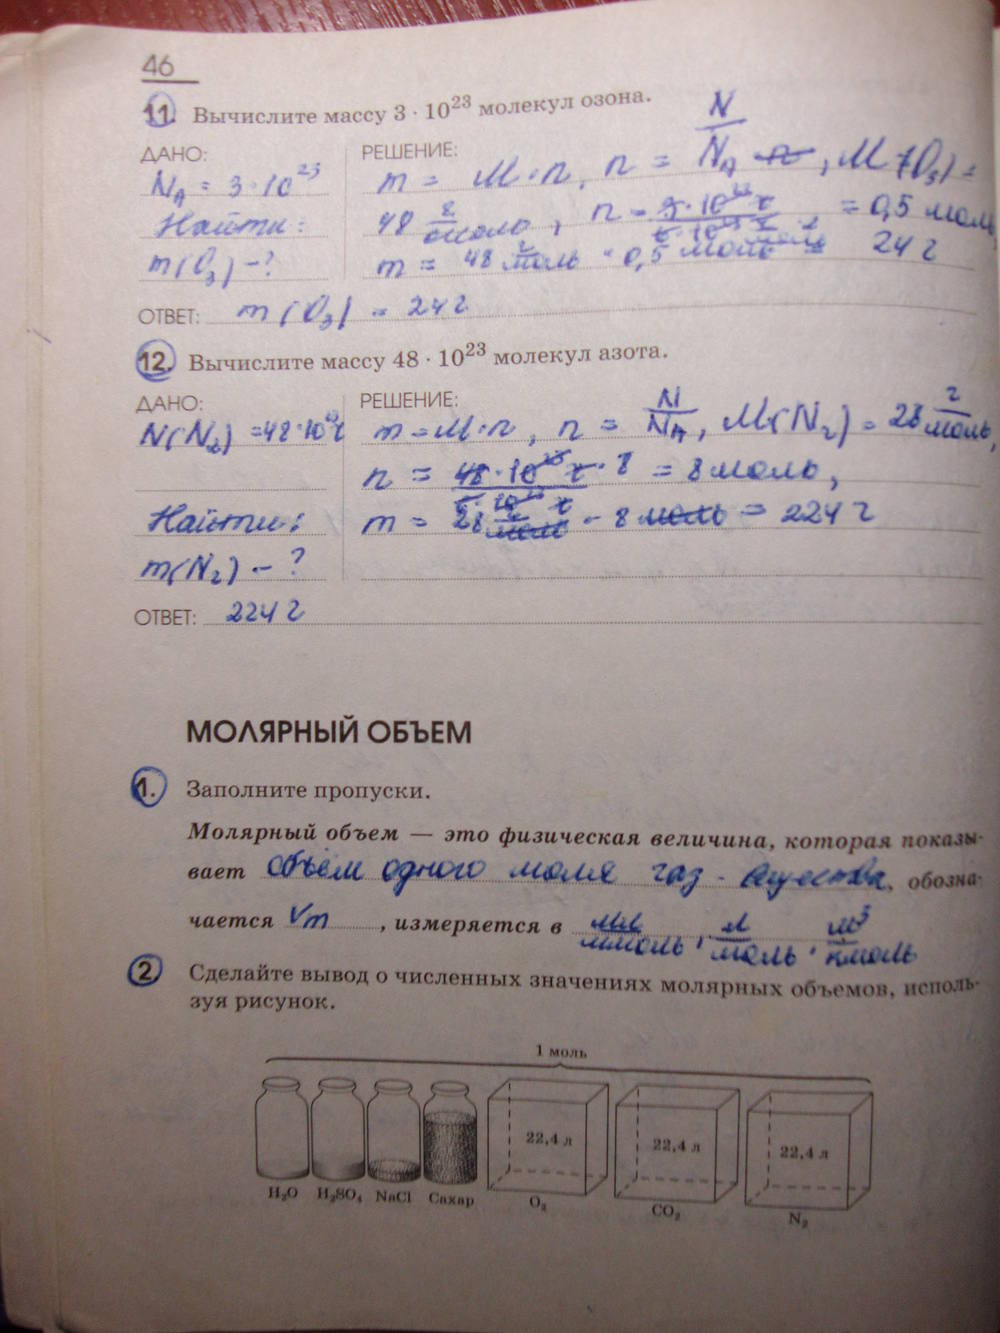 46
11. Вычислите массу 3 · 10²³ молекул озона.
ДАНО:
N_A = 3·10²³
Найти:
m(O₃) – ?
РЕШЕНИЕ:
m = M·n, n = N/N_A, M(O₃) =
48 г/моль, n = = 0,5 моль
m = 48 г/моль · 0,5 моль = 24 г
ОТВЕТ: m(O₃) = 24 г
12. Вычислите массу 48 · 10²³ молекул азота.
ДАНО:
N(N₂) = 48·10²³
Найти:
m(N₂) – ?
РЕШЕНИЕ:
m = M·n, n = N/N_A, M(N₂) = 28 г/моль,
n = = 8 моль,
m = 28 г/моль · 8 моль = 224 г
ОТВЕТ: 224 г
МОЛЯРНЫЙ ОБЪЕМ
1. Заполните пропуски.
Молярный объем — это физическая величина, которая показы-
вает объём одного моля газ. вещества, обозна-
чается Vm, измеряется в мл/ммоль, л/моль, м³/кмоль
2. Сделайте вывод о численных значениях молярных объемов, исполь-
зуя рисунок.
1 моль
22,4 л 22,4 л 22,4 л
H₂O H₂SO₄ NaCl Сахар O₂ CO₂ N₂